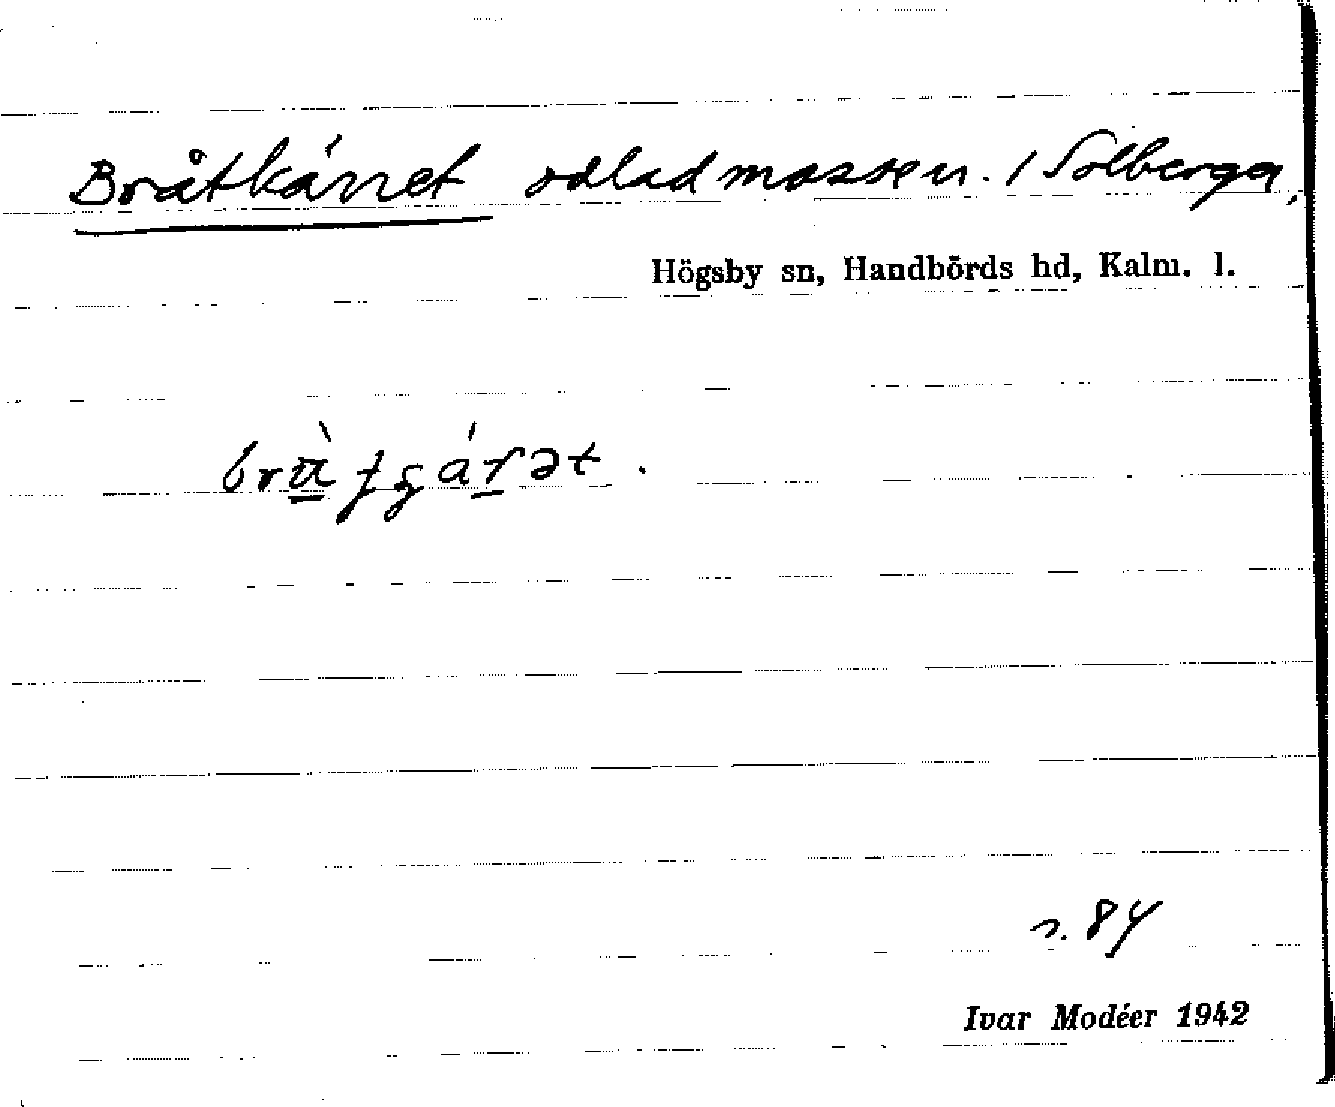 Bråtkärret odlad mossen. / Solberga,
Högsby sn, Handbörds hd, Kalm. l.
s. 84
Ivar Modéer 1942